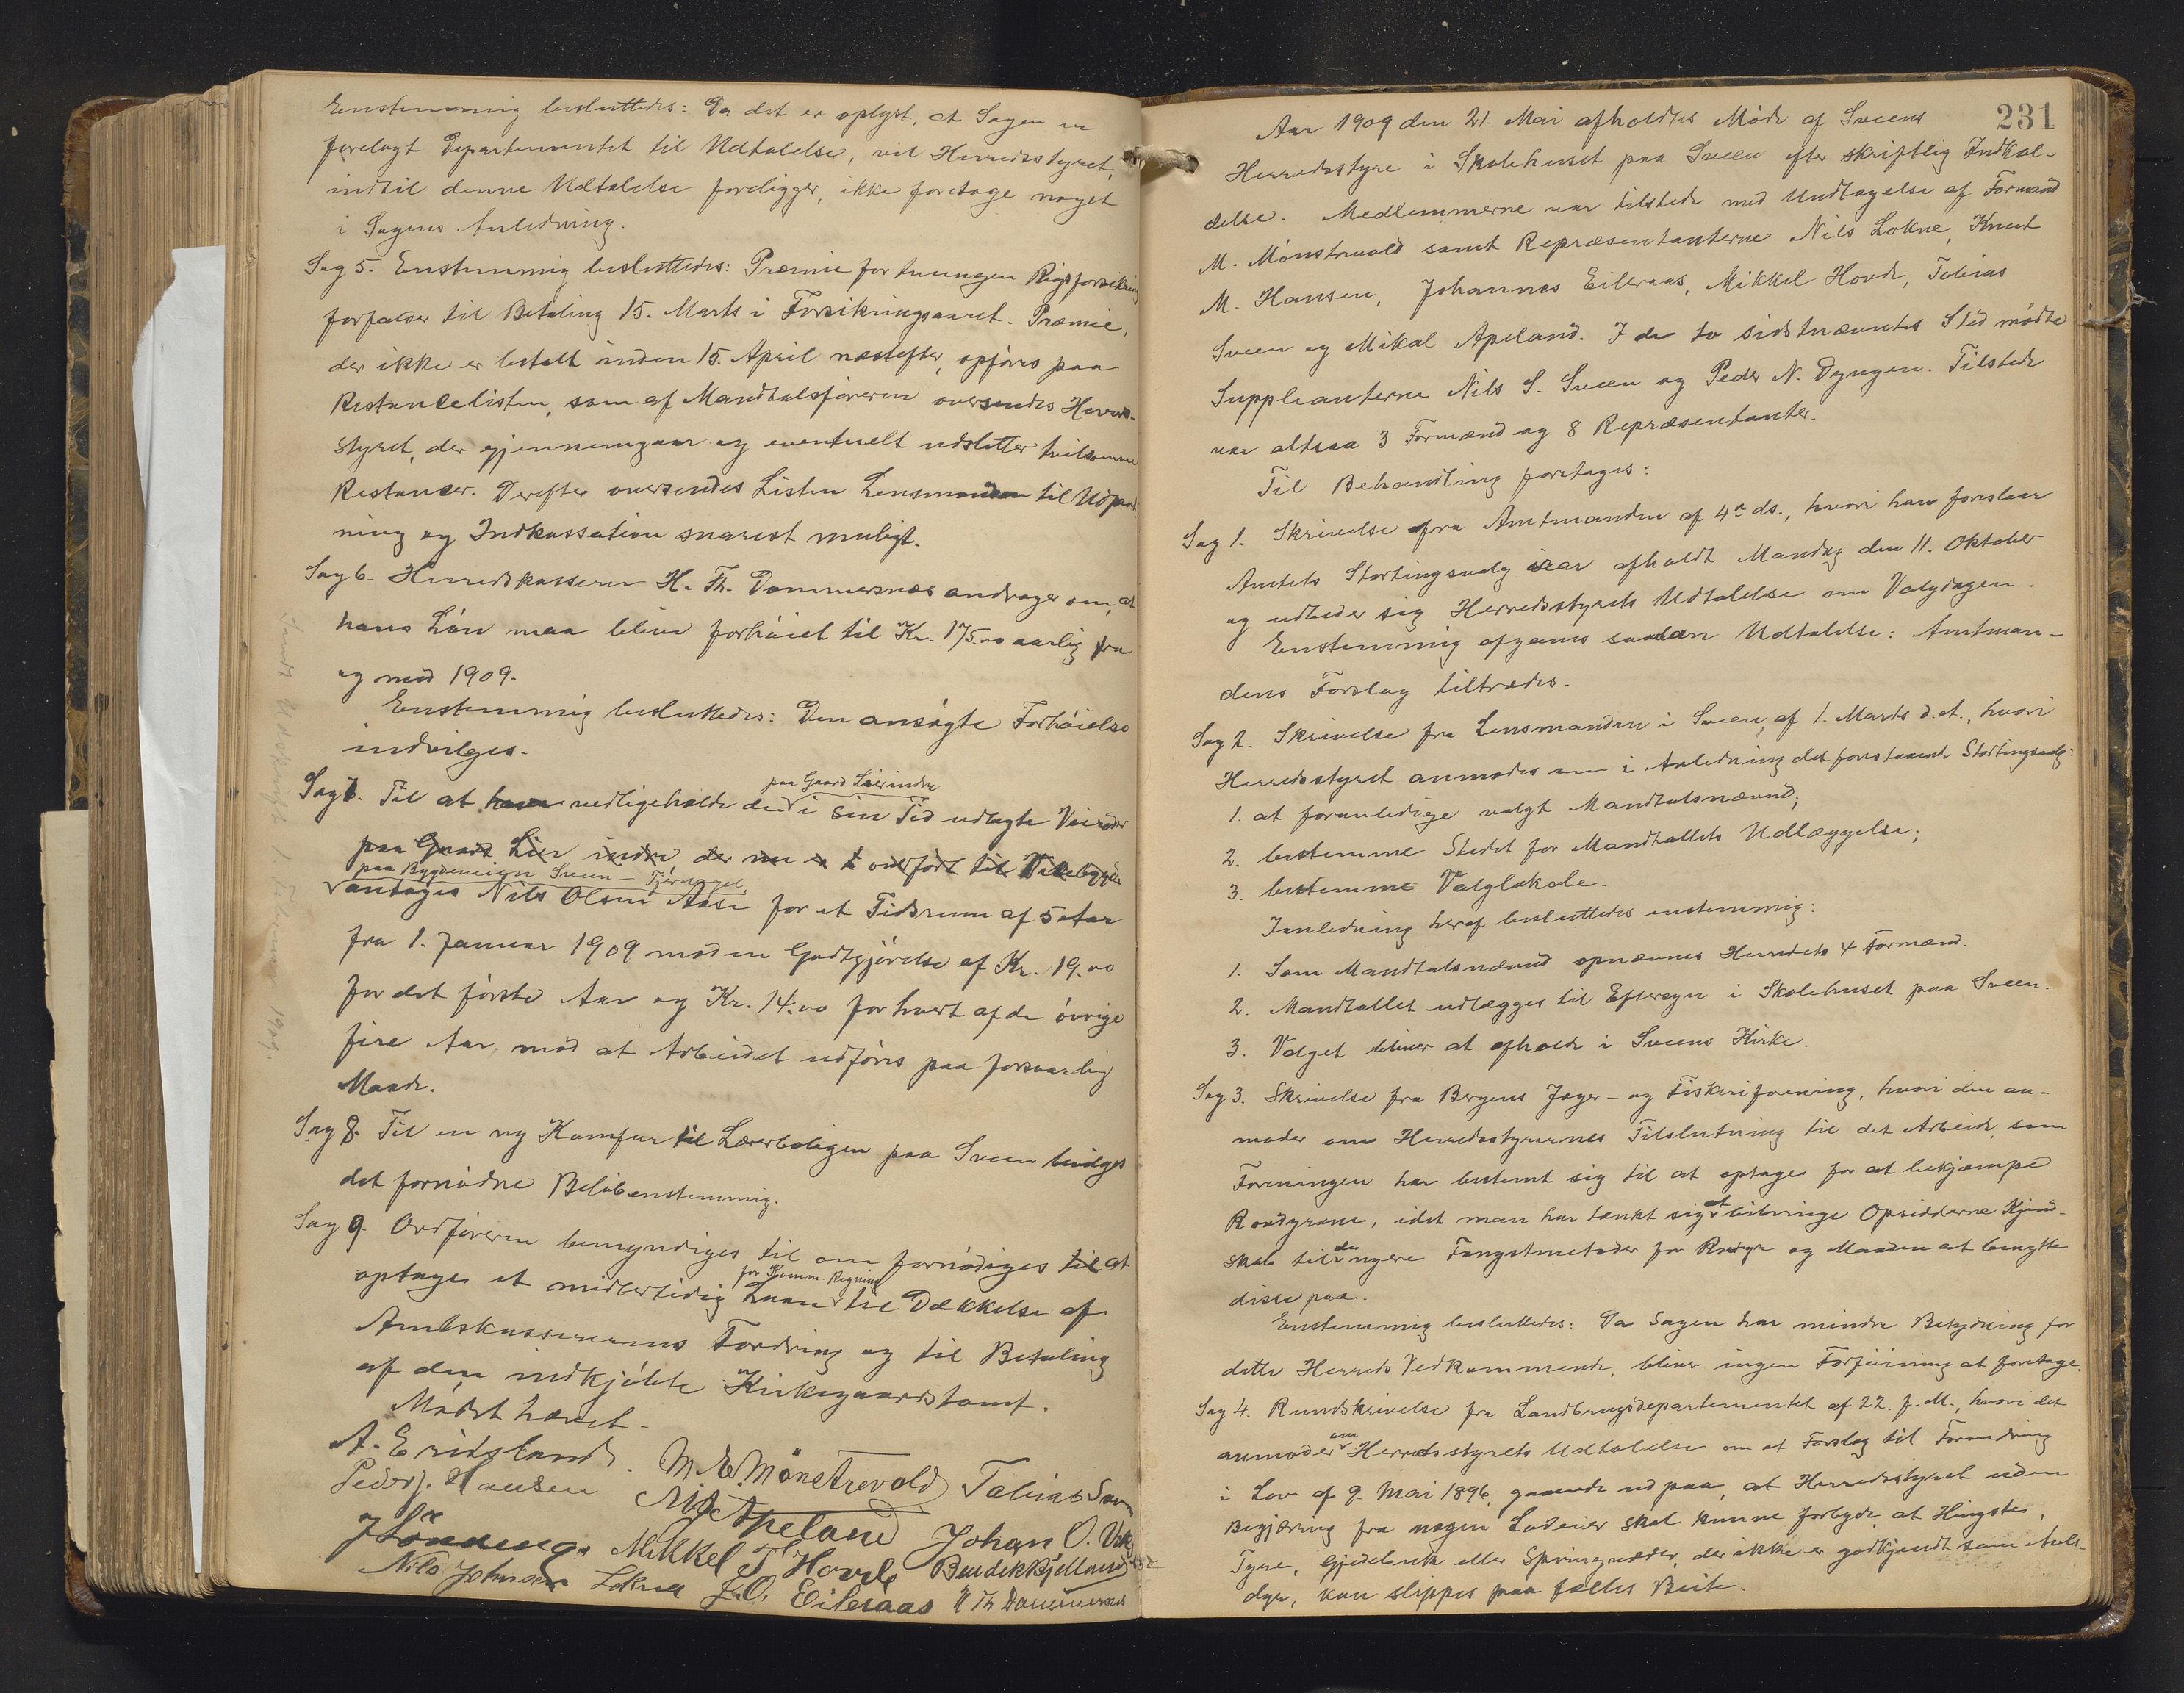 Enstemmig besluttedes: Da det er oplyst, at Sagen er
forelagt Departementet til Udtalelse, vil Herredsstyret,
indtil denne Udtalelse foreligger, ikke foretage noget
i Sagens Anledning.
Sag 5. Enstemmig besluttedes: Præmie for tvungen
forfalder til Betaling 15. Marts i Forsikringsaaret. Præmie,
der ikke er betalt inden 15. April næstefter, opføres paa
Restancelisten, som af Mandtalsføreren oversendes Herreds-
styret, der gjennemgaar og eventuelt udsletter tvilsomme
Restancer. Derefter oversendes Listen Lensmanden til Udpant-
ning og Indkassation snarest muligt.
Sag 6. Herredskasserer H. Th. Dommersnæs andrager om, at
hans Løn maa blive forhøiet til Kr. 175.00 aarlig fra
og med 1909.
Enstemmig besluttedes: Den ansøgte Forhøielse
indvilges.
paa Gaard Lier indre
Sag 7. Til at vedligeholde den i sin Tid udlagte Veiroder
paa Gaard Lier indre der nu er overført til
paa Bygdeveien Sveen - Tjernagel
antages Nils Olsen Aase for et Tidsrum af 5 Aar
fra 1. Januar 1909 mod en Godtgjørelse af Kr. 19.00
for det første Aar og Kr. 14.00 for hvert af de øvrige
fire Aar, mod at Arbeidet udføres paa forsvarlig
Maade.
Sag 8. Til en ny Komfur til Lærerboligen paa Sveen bevilges
det fornødne Beløb enstemmig.
Sag 9. Ordføreren bemyndiges til om fornødiges til at
for Komm. Regning
optage et midlertidig Laan til Dækkelse af
Amtskassererens Fordring og til Betaling
af den indkjøbte Kirkegaardstomt.
Mødet hævet.
A. Eridsland. M. E. Mönstrevold Tobias Sveen
Peder J. Hansen M. Apeland
Mikkel T. Hovde Johan O. Vik
Nils Johnsen Lokna J. O. Eileraas Bendik Bjelland
H Th Dommersnæs
231
Aar 1909 den 21. Mai afholdtes Møde af Sveens
Herredsstyre i Skolehuset paa Sveen efter skriftlig Indkal-
delse. Medlemmerne var tilstede med Undtagelse af Formand
M. Mønstrevold samt Repræsentanterne Nils Lokne, Knut
M. Hansen, Johannes Eileraas, Mikkel Hovde, Tobias
Sveen og Mikal Apeland. I de to sidstnævntes Sted mødte
Suppleanterne Nils S. Sveen og Peder N. Dyngen. Tilstede
var altsaa 3 Formænd og 8 Repræsentanter.
Til Behandling foretages:
Sag 1. Skrivelse fra Amtmanden af 4de ds., hvori han foreslaar
Amtets Stortingsvalg iaar afholdt Mandag den 11. Oktober
og udbeder sig Herredsstyrets Udtalelse om Valgdagen.
Enstemmig afgaves saadan Udtalelse: Amtman-
dens Forslag tiltrædes.
Sag 2. Skrivelse fra Lensmanden i Sveen, af 1. Marts d.A., hvori
Herredsstyret anmodes om i Anledning det forestaaende Stortingsvalg:
1. at foranledige valgt Mandtalsnævnd;
2. bestemme Stedet for Mandtallets Udlæggelse;
3. bestemme Valglokale.
I anledning heraf besluttedes enstemmig:
1. Som Mandtalsnævnd opnævnes Herredets 4 Formænd.
2. Mandtallet udlægges til Eftersyn i Skolehuset paa Sveen.
3. Valget bliver at afholde i Sveens Kirke.
Sag 3. Skrivelse fra Bergens Jæger- og Fiskeriforening, hvori den an-
moder om Herredsstyrernes Tilslutning til det Arbeide, som
Foreningen har bestemt sig til at optage for at bekjæmpe
Rovdyrene, idet man har tænkt sig at bibringe Opsidderne Kjend-
skab til de nyere Fangstmetoder for Rovdyr og Maaden at benytte
disse paa.
Enstemmig besluttedes: Da Sagen har mindre Betydning for
dette Herreds Vedkommende, bliver ingen Forføining at foretage.
Sag 4. Rundskrivelse fra Landbrugsdepartementet af 22. f.M., hvori det
anmoder om Herredsstyrets Udtalelse om et Forslag til Forandring
i Lov af 9. Mai 1896, gaaende ud paa, at Herredsstyret uden
Begjæring fra nogen Lodeier skal kunne forbyde, at Hingster,
Tyre, Gjedebuk eller Springvæder, der ikke er godkjendt som Avls-
dyr, kan slippes paa fælles Beite.